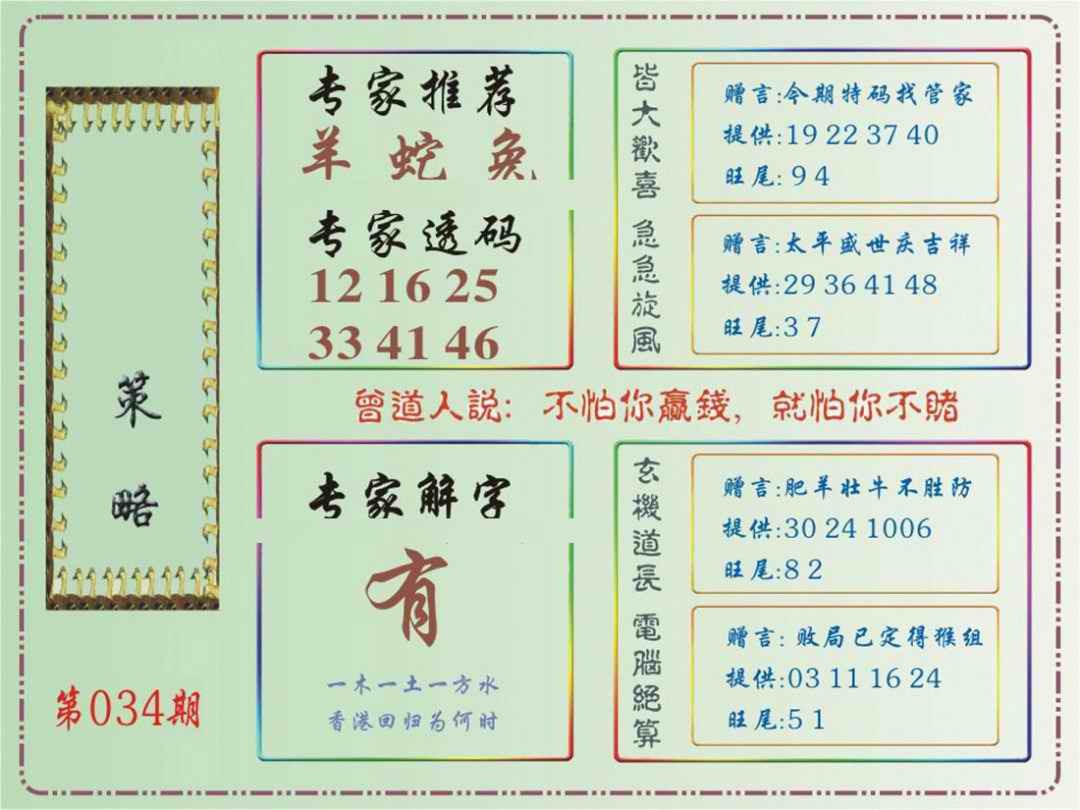 策
略
第034期
专家推荐
羊 蛇 兔
专家透码
12 16 25
33 41 46
皆大歡喜
赠言:今期特码找管家
提供:19 22 37 40
旺尾: 9 4
急急旋風
赠言:太平盛世庆吉祥
提供:29 36 41 48
旺尾:3 7
曾道人説: 不怕你贏錢, 就怕你不賭
专家解字
有
一木一土一方水
香港回归为何时
玄機道長
赠言:肥羊壮牛不胜防
提供:30 24 1006
旺尾:8 2
電腦絕算
赠言: 败局已定得猴组
提供:03 11 16 24
旺尾:5 1